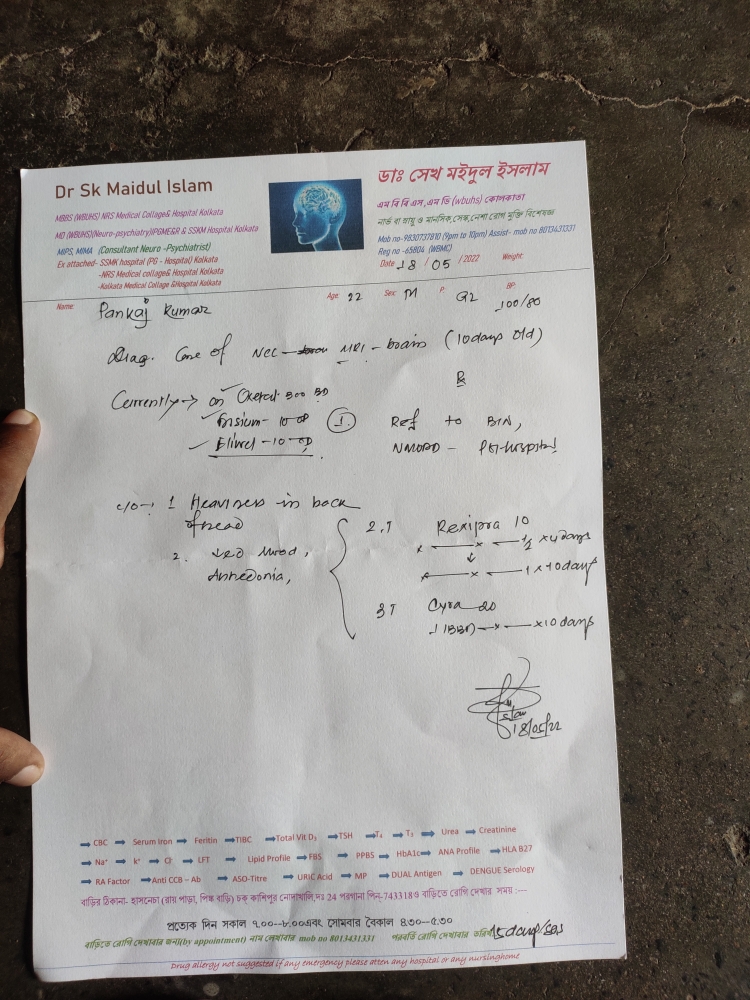 Dr Sk Maidul Islam
MBBS (WBUHS) NRS Medical Collage& Hospital Kolkata
MD (WBUHS)(Neuro-psychiatry)IPGME&R & SSKM Hospital Kolkata
MIPS, MIMA (Consultant Neuro -Psychiatrist)
Ex attached- SSMK hospital (PG - Hospital) Kolkata
-NRS Medical collage& Hospital Kolkata
-Kolkata Medical Collage &Hospital Kolkata
ডাঃ সেখ মইদুল ইসলাম
এম বি বি এস,এম ডি (wbuhs) কোলকাতা
নার্ভ বা স্নায়ু ও মানসিক,সেক্স,নেশা রোগ মুক্তি বিশেষজ্ঞ
Mob no-9830737810 (9pm to 10pm) Assist- mob no 8013431331
Reg no -65804 (WBMC)
Date 18 / 05 / 2022 Weight:
Name: Pankaj Kumar Age: 22 Sex: M P: 92 BP: 100/80
Diag. Case of NCC MRI - brain (10 days old)
Currently → on Oxetol 300 BD
Frisium - 10 OD
- 10 OD
Rx
1. Ref to BIN,
- PG-hospital
c/o -: 1 Heaviness in back
of head
2. Mood,
Anhedonia,
2. T Rexipra 10
x x 1/2 x 4 days
x x 1 x 10 days
3 T Cyra 20
1 (BBF) x x 10 days
18/05/22
CBC Serum Iron Feritin TIBC Total Vit D3 TSH T4 T3 Urea Creatinine
Na+ k+ Cl LFT Lipid Profile FBS PPBS HbA1c ANA Profile HLA B27
RA Factor Anti CCB - Ab ASO-Titre URIC Acid MP DUAL Antigen DENGUE Serology
বাড়ির ঠিকানা- হাসনেচা (রায় পাড়া, পিঙ্ক বাড়ি) চক্ কাশিপুর নোদাখালি,দঃ 24 পরগনা পিন-743318৩ বাড়িতে রোগি দেখার সময় :---
প্রত্যেক দিন সকাল ৭.০০--৮.০০এবং সোমবার বৈকাল ৪.৩০--৫.৩০
বাড়িতে রোগি দেখাবার জন্য(by appointment) নাম লেখাবার mob no 8013431331 পরবর্তি রোগি দেখাবার তারিখ 15 days/
Drug allergy not suggested if any emergency please atten any hospital or any nursinghome